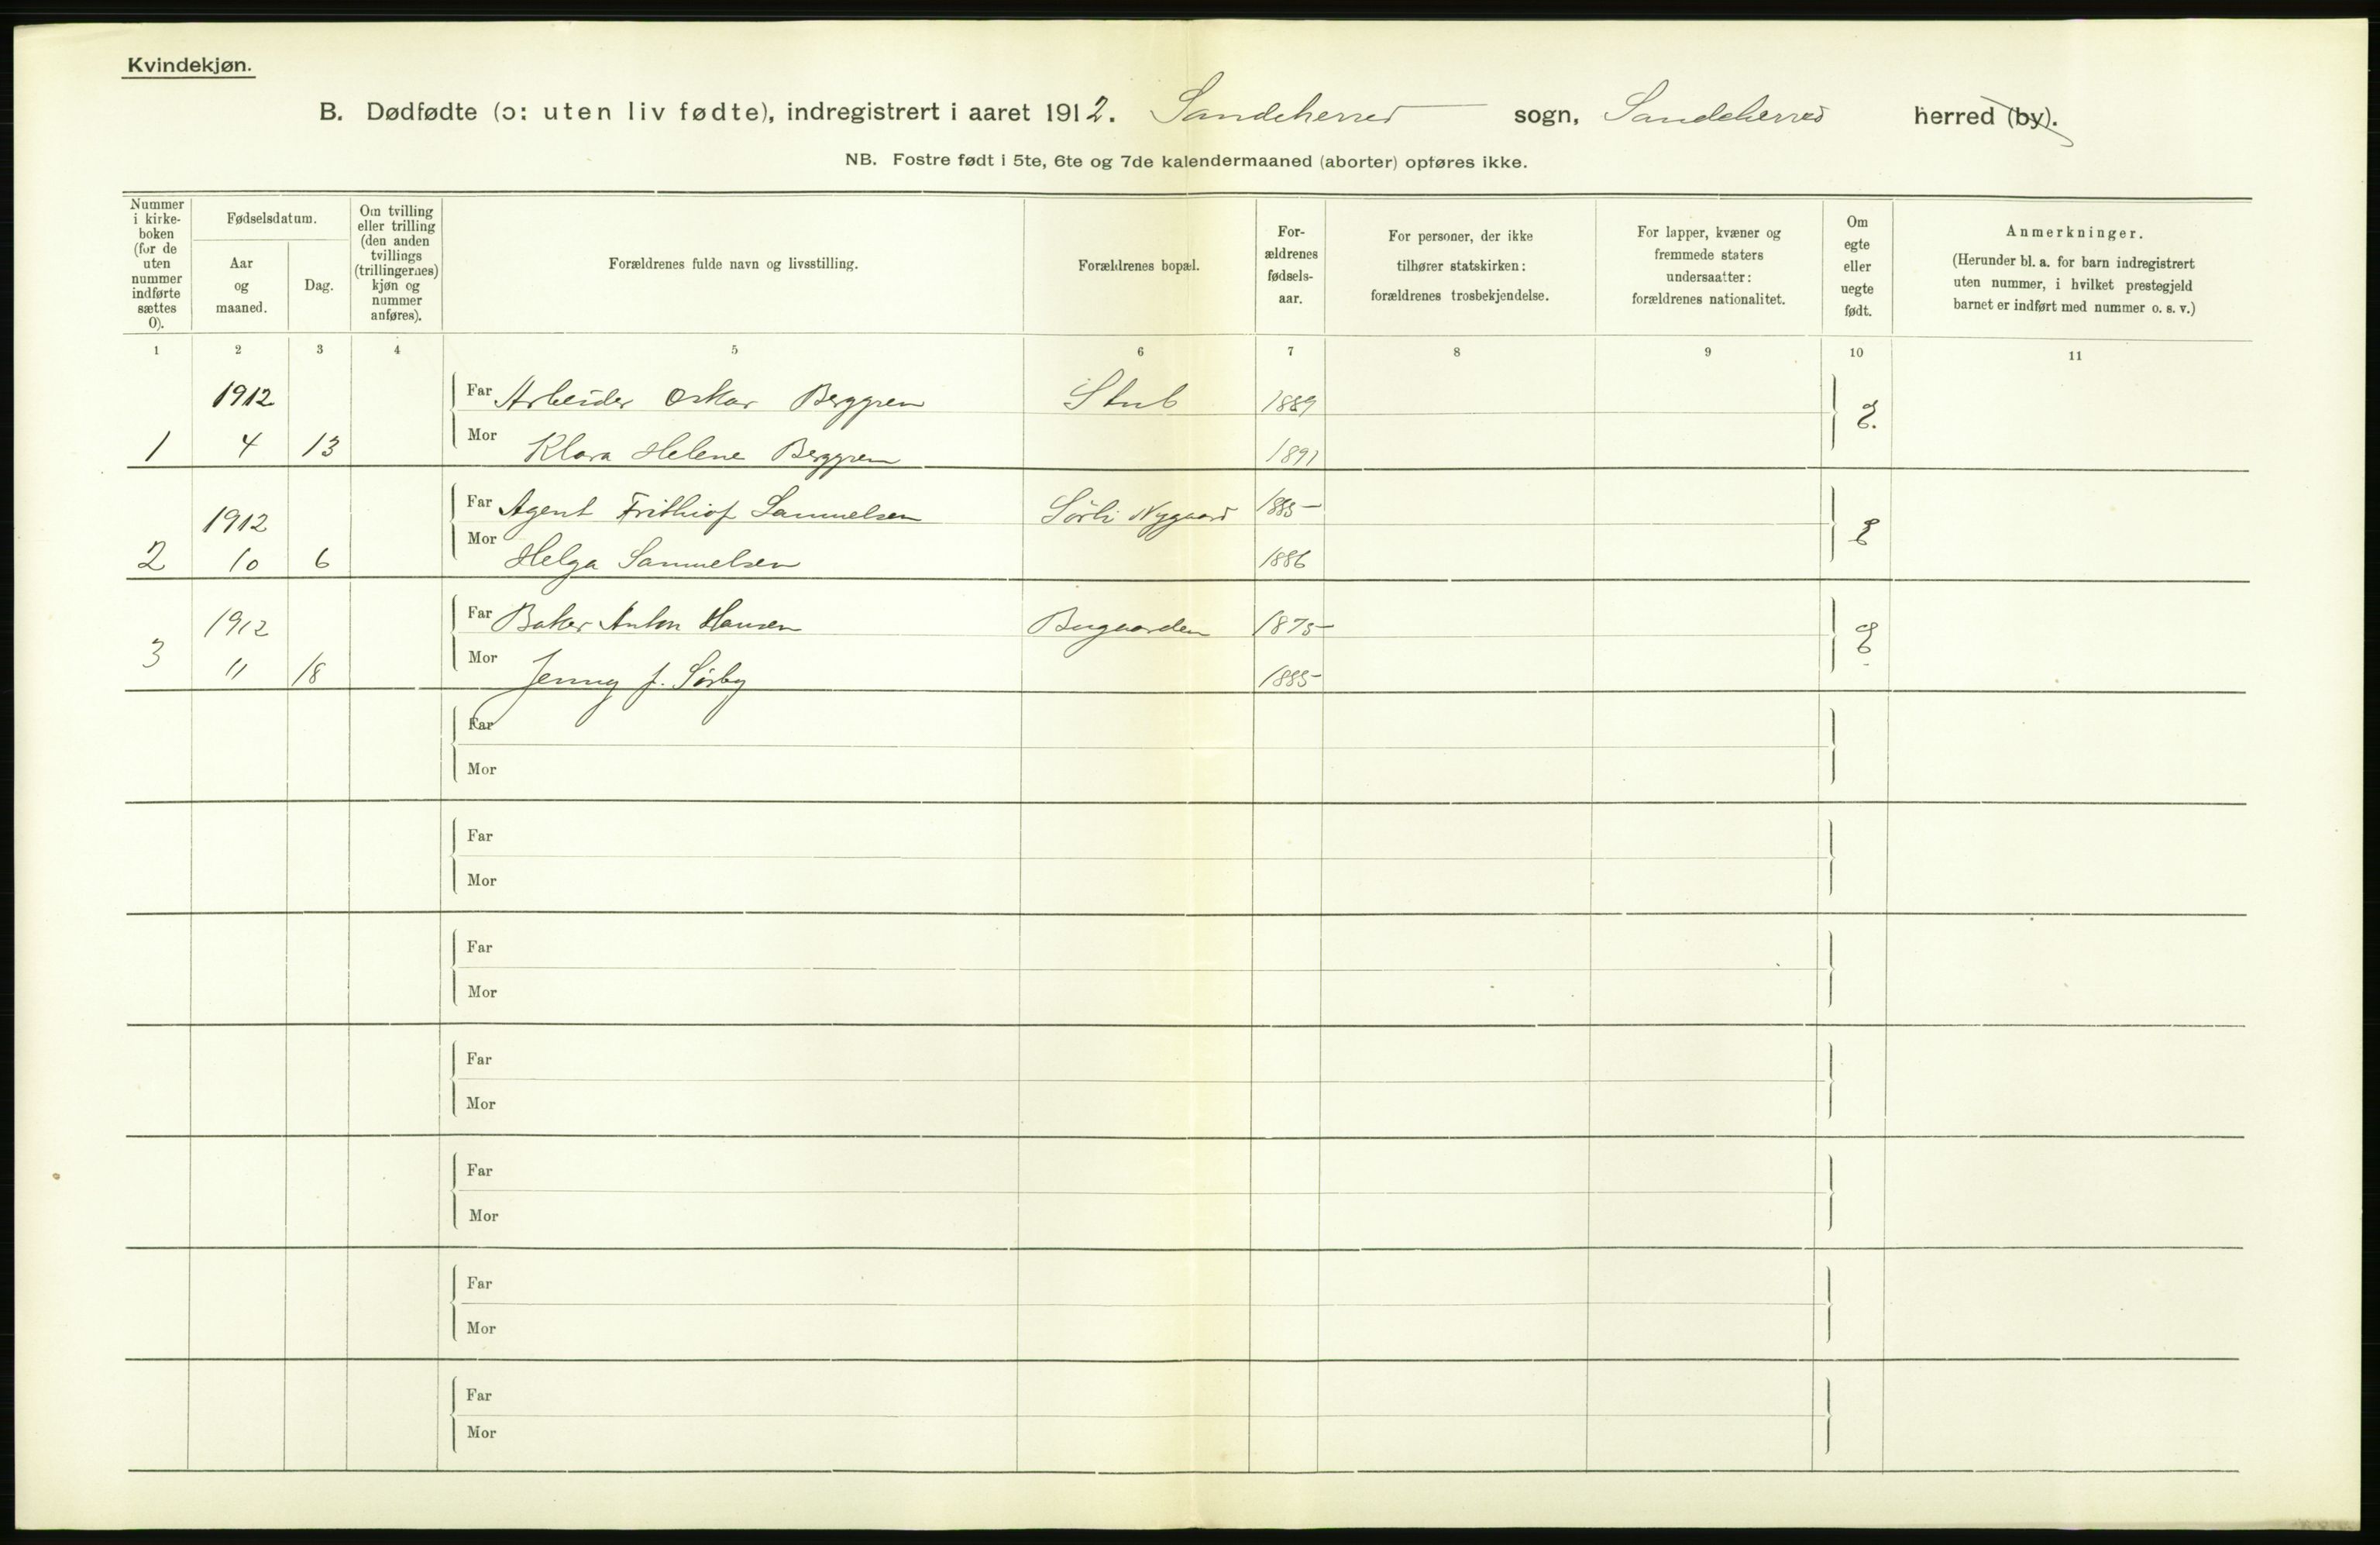 Kvindekjøn.
B. Dødfødte (ɔ: uten liv fødte), indregistrert i aaret 1912. Sandeherred sogn, Sandeherred herred (by).
NB. Fostre født i 5te, 6te og 7de kalendermaaned (aborter) opføres ikke.
Nummer
i kirke-
boken
(for de
uten
nummer
indførte
sættes
0).
Fødselsdatum.
Aar
og
maaned.
Dag.
Om tvilling
eller trilling
(den anden
tvillings
(trillingernes)
kjøn og
nummer
anføres).
Forældrenes fulde navn og livsstilling.
Forældrenes bopæl.
For-
ældrenes
fødsels-
aar.
For personer, der ikke
tilhører statskirken:
forældrenes trosbekjendelse.
For lapper, kvæner og
fremmede staters
undersaatter:
forældrenes nationalitet.
Om
egte
eller
uegte
født.
Anmerkninger.
(Herunder bl. a. for barn indregistrert
uten nummer, i hvilket prestegjeld
barnet er indført med nummer o. s. v.)
1 2 3 4 5 6 7 8 9 10 11
1912 Far Arbeider Oskar Berggren Stub 1889 E.
1 4 13 Mor Klara Helene Berggren 1891
1912 Far Agent Frithiof Samuelsen Sørli Nygaard 1885 E
2 10 6 Mor Helga Samuelsen 1886
1912 Far Baker Anton Hansen Bugaarden 1875 E
3 11 18 Mor Jenny f. Sørby 1885
Far
Mor
Far
Mor
Far
Mor
Far
Mor
Far
Mor
Far
Mor
Far
Mor